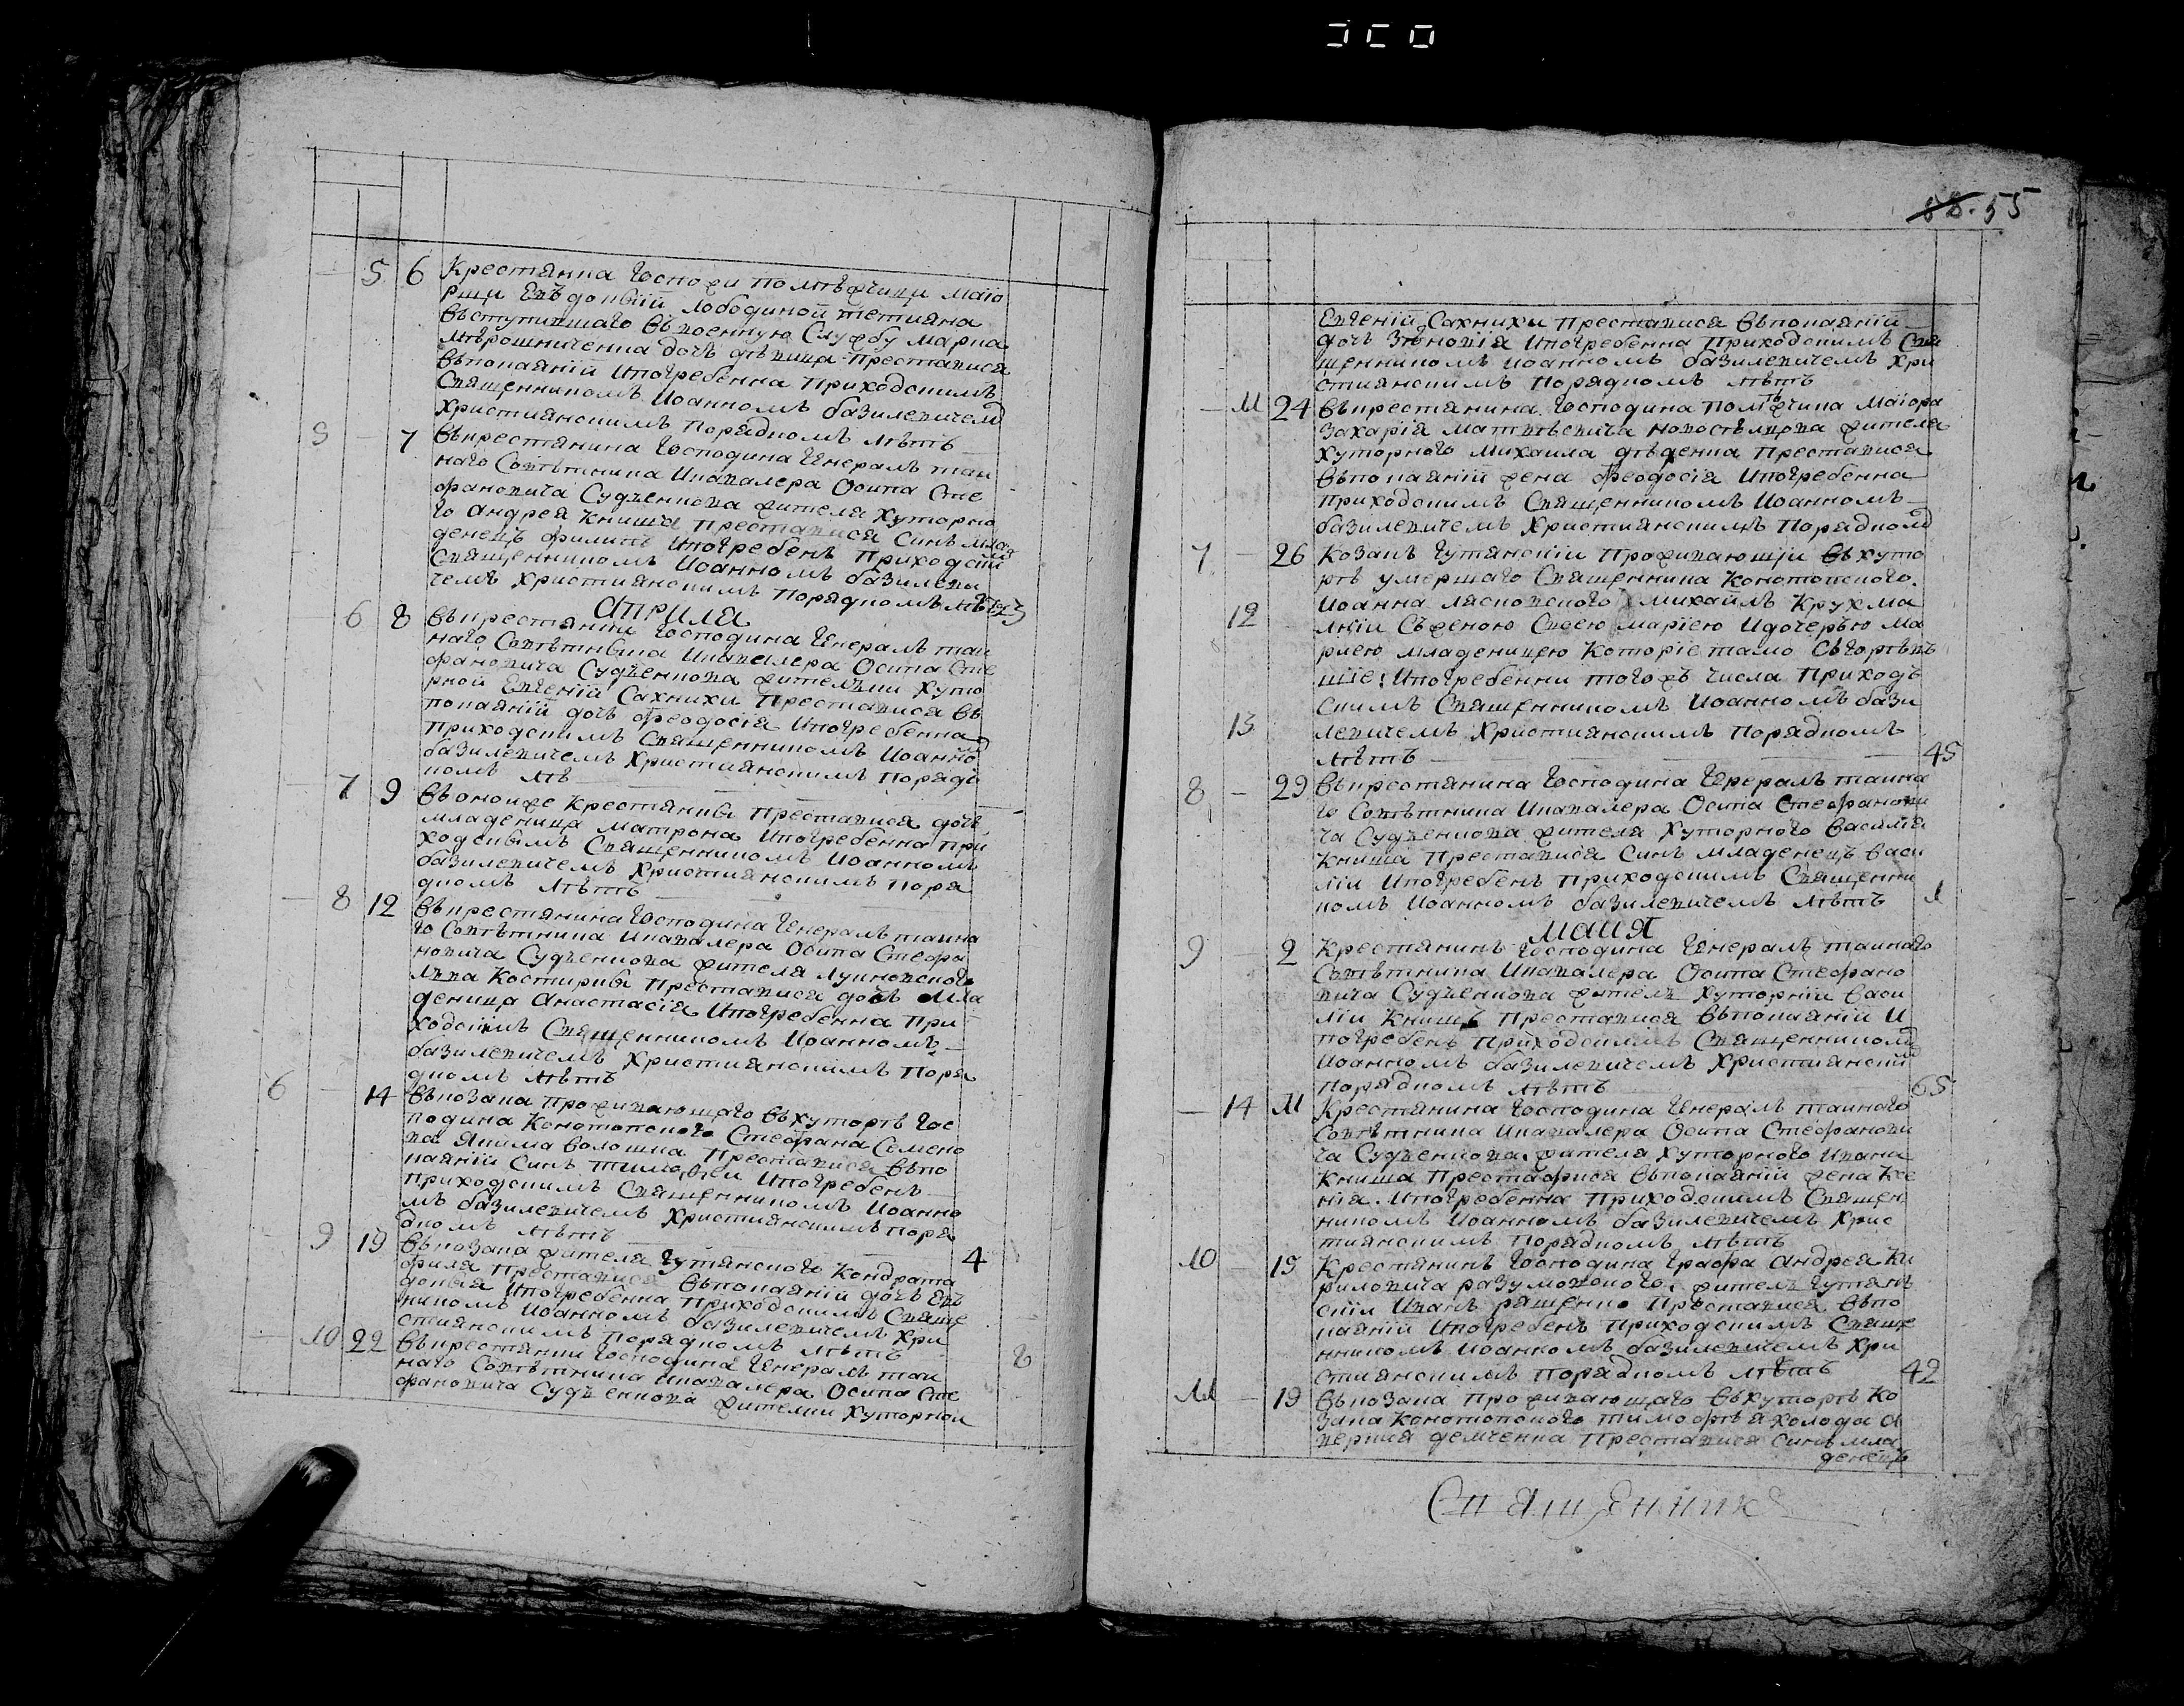 58. 55
5 6 Крестянка Госпожи Помѣжчици Маіо
рши Евъдокіій Лободиной Тетияна
въступившаго въ военную Службу Марка
Мѣрошниченка дочъ дѣвица Преставися
въ покаяній Ипогребенна Приходскимъ
Священникомъ Иоанномъ базилевичем
Християнскимъ Порядкомъ лѣтъ
5 7 въ крестянина Господина Генералъ таи
наго Совѣтника Икавалера Осипа Сте
фановича Судъенкова жителя Хуторно
го Андрея Книша Преставися Синъ мла
денецъ Филипъ Ипогребенъ Приходский
Священникомъ Иоанномъ базилеви
чемъ Християнскимъ Порядкомъ лѣтъ 3
Априля
6 8 въ крестянки Господина Генералъ таи
наго Совѣтника Икавалера Осипа Сте
фановича Судъенкова жителки Хуто
рной Евгеній Сахнихи Преставися въ
покаяній дочъ Феодосія Ипогребенна
Приходскимъ Священникомъ Иоанном
базилевичемъ Християнскимъ Порядъ
комъ лѣ
7 9 въ оноиже Крестянки Преставися дочъ
младеница Матрона Ипогребенна При
ходскимъ Священникомъ Иоанномъ
базилевичемъ Християнскимъ Поря
дкомъ лѣтъ
8 12 въ крестянина Господина Генералъ таина
го Совѣтника Икавалера Осипа Стефа
новича Судъенкова жителя Лукновского
Костирки Преставися дочъ мла
деница Анастасія Ипогребенна При
ходскимъ Священникомъ Иоанномъ
базилевичемъ Християнскимъ Поря
дкомъ лѣтъ
6 14 въ козака Проживающаго въ хуторѣ Гос
подина Конотопского Стефана Семено
ва Якима Волошка Преставися въ по
каяній Синъ Тимофей Ипогребенъ
Приходскимъ Священникомъ Иоанно
мъ базилевичемъ Християнскимъ Поря
дкомъ лѣтъ 4
9 19 въ козака жителя Гутянского Кондрата
филя Преставися въ покаяній дочъ Евъ
докія Ипогребенна Приходскимъ Свяще
никомъ Иоанномъ базилевичемъ Хри
стиянскимъ Порядкомъ лѣтъ 8
10 22 въ крестянки Господина Генералъ таи
наго Совѣтника Икавалера Осипа Сте
фановича Судъенкова жителки Хуторнои
Евгеній Сахнихи Преставися въ покаяній
дочъ Зѣновія Ипогребенна Приходскимъ Свя
щенникомъ Иоанномъ базилевичемъ Хри
стиянскимъ Порядкомъ лѣтъ
11 24 въ крестянина Господина Помѣжчика Маіора
Захарія Матвѣевича Новосѣлцова жителя
Хуторного Михаила дѣденка Преставися
въ покаяній жена Феодосія Ипогребенна
приходскимъ Священникомъ Иоанномъ
базилевичемъ Християнскимъ Порядком
7 26 Козакъ Гутянскіи Проживающіи въ хуто
рѣ умершаго Священника Конотопского
12 Иоанна Лясковского Михаилъ Крухма
лніи Съ женою Своею Маріею Идочерью Ма
риею младеницею Которіе тамо Съгорѣвъ
шіе: Ипогребенни тогожъ числа Приходъ
скимъ Священникомъ Иоанномъ бази
13 левичемъ Християнскимъ Порядкомъ
лѣтъ 45
8 29 въ крестянина Господина Генералъ таина
го Совѣтника Икавалера Осипа Стефанови
ча Судъенкова жителя Хуторного Василія
Книша Преставися Синъ младенецъ Васи
ліи Ипогребенъ Приходскимъ Священни
комъ Иоанномъ базилевичемъ лѣтъ 1
Маия
9 2 Крестянинъ Господина Генералъ таинаго
Совѣтника Икавалера Осипа Стефано
вича Судъенкова жителъ Хуторніи Васи
ліи Книшъ Преставися въ покаяній И
погребенъ Приходскимъ Священником
Иоанномъ базилевичемъ Христианский
Порядкомъ лѣтъ 65
14 11 Крестянина Господина Генералъ таиного
Совѣтника Икавалера Осипа Стефанови
ча Судъенкова жителя Хуторного Ивана
Книша Преставися въ покаяній жена Ксе
нія Ипогребенна Приходскимъ Священ
никомъ Иоанномъ базилевичемъ Хрис
тиянскимъ Порядкомъ лѣтъ
10 19 Крестянинъ Господина Графа Андрея Ки
риловича разумовского жителъ Гутянъ
скіи Иванъ ращенко Преставися въ по
каяній Ипогребенъ Приходскимъ Свяще
нникомъ Иоанномъ базилевичемъ Хри
стиянскимъ Порядкомъ лѣтъ 42
11 19 въ козака Проживающаго въ хуторѣ Ко
зака Конотопского Тимофѣя холода А
веркия демченка Преставися Синъ мла
денецъ
Священникъ